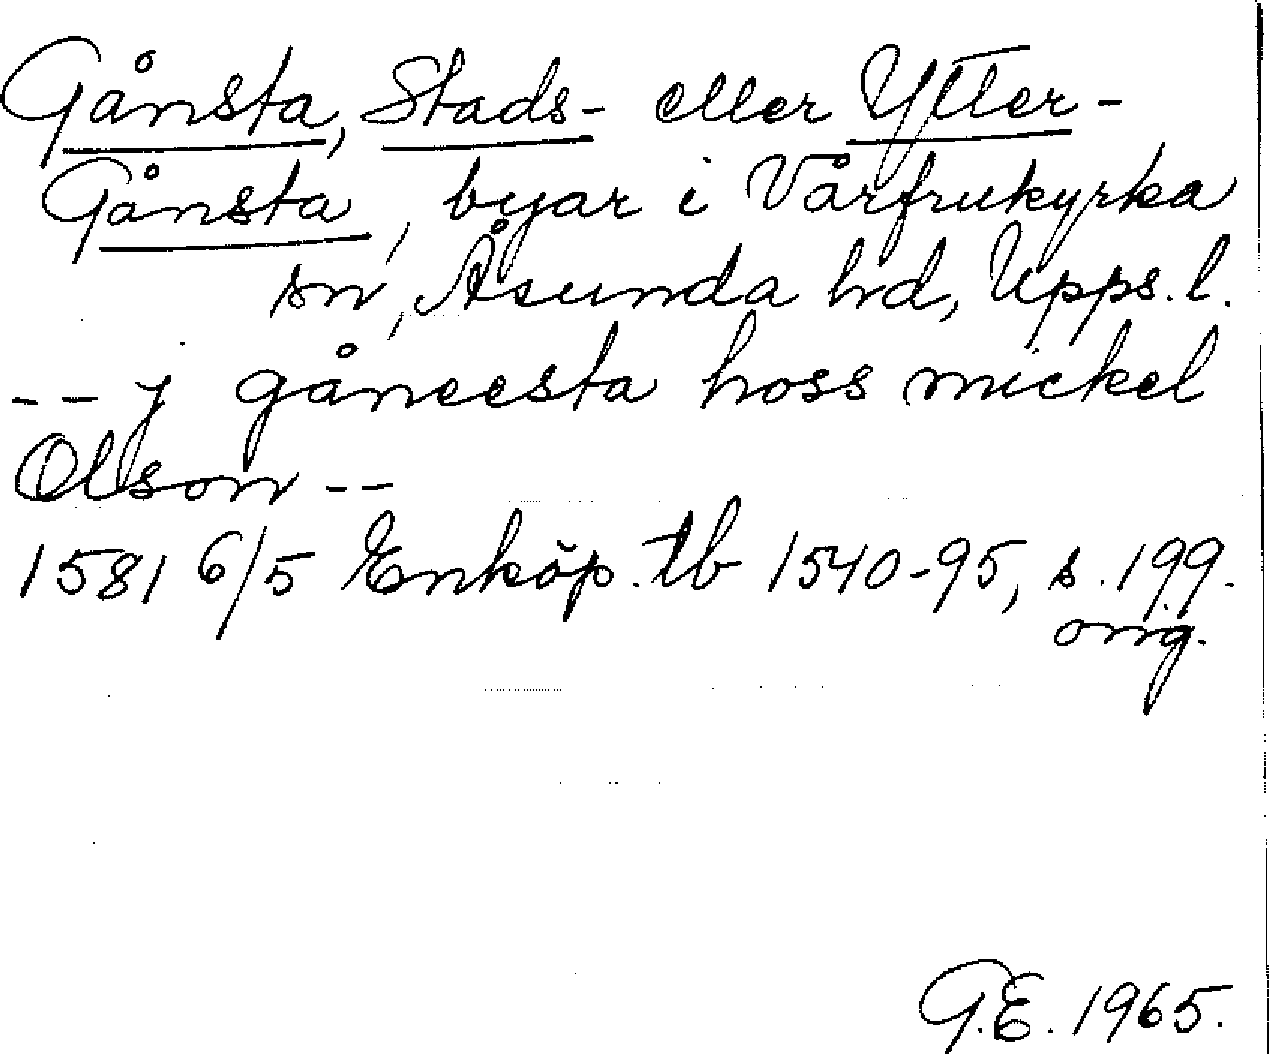 Gånsta, Stads- eller Ytter-
Gånsta, byar i Vårfrukyrka
sn, Åsunda hd, Upps. l.
-- j gåneesta hoss mickel
Olson --
1581 6/5 Enköp. tb 1540-95, s. 199.
orig.
G.E. 1965.